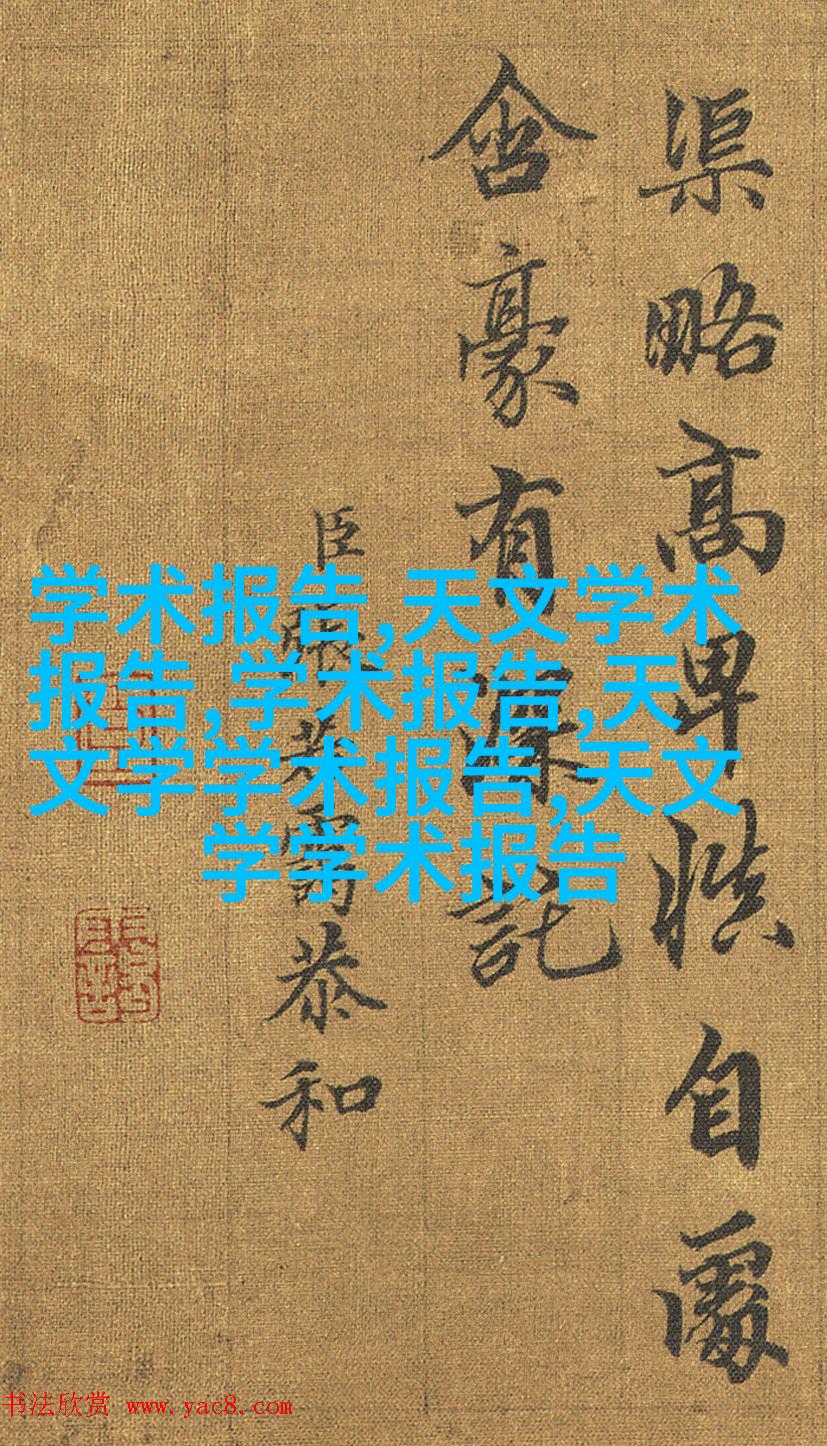 渠略高卑慎自處
含豪有深託
臣張若靄恭和
学术报告,天文学术
报告,学术报告,天
文学学术报告,天文
学学术报告
书法欣赏 www.yac8.com